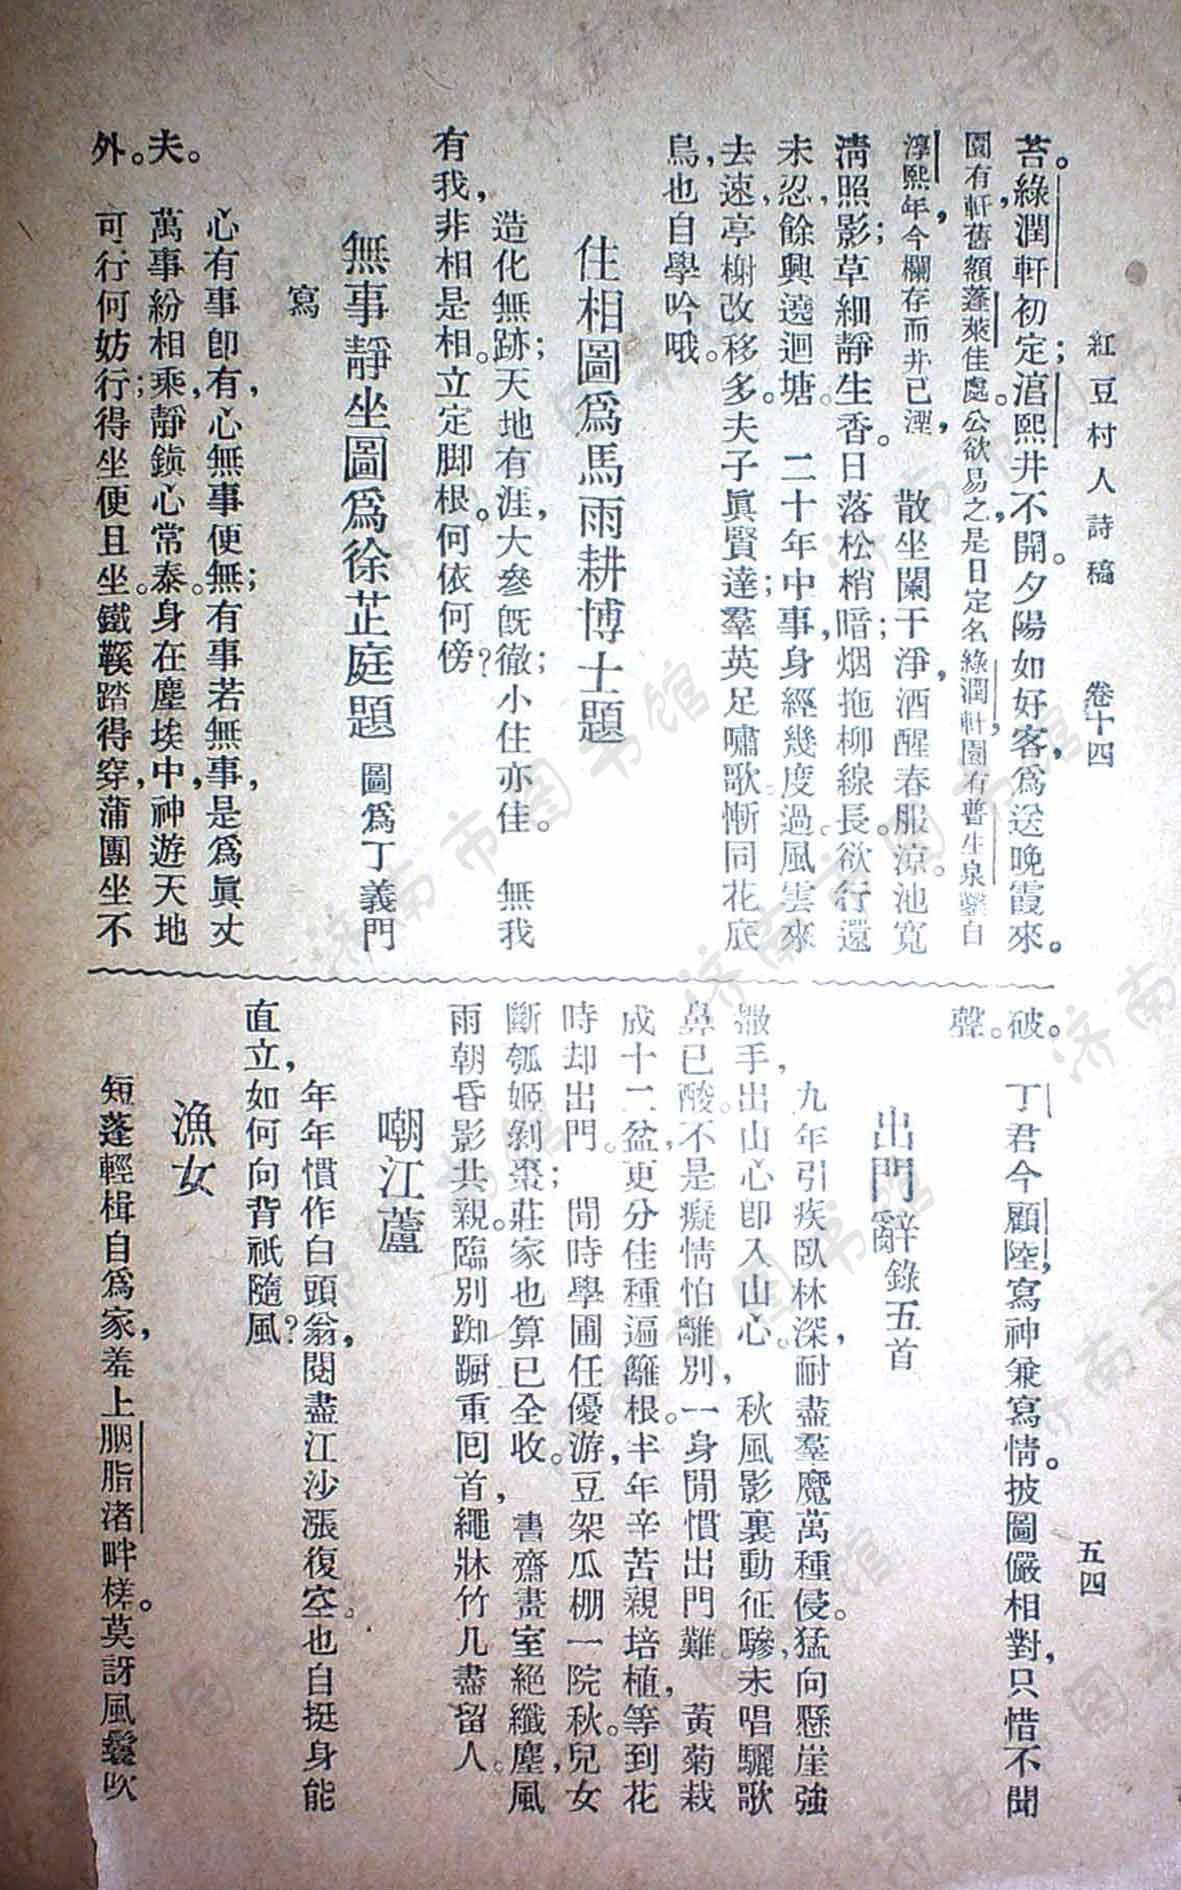 紅豆村人詩稿　卷十四　五四
苔。綠潤軒初定；涫熙井不開。夕陽如好客，爲送晚霞來。
園有軒，舊額蓬萊佳處。公欲易之，是日定名綠潤軒，園有普生泉，鑿自
淳熙年，今欄存而井已湮，　散坐闌干淨，酒醒春服涼。池寬
淸照影；草細靜生香。日落松梢暗；烟拖柳線長。欲行還
未忍，餘興邊迴塘。　二十年中事，身經幾度過。風雲來
去速，亭榭改移多。夫子眞賢達；羣英足嘯歌。慚同花底
鳥，也自學吟哦。
住相圖爲馬雨耕博士題
造化無跡；天地有涯，大參旣徹；小住亦佳。　無我
有我，非相是相。立定脚根。何依何傍？
無事靜坐圖爲徐芷庭題　圖爲丁義門
寫
心有事卽有，心無事便無；有事若無事，是爲眞丈
夫。　萬事紛相乘，靜鎭心常泰。身在塵埃中，神遊天地
外。　可行何妨行；得坐便且坐，鐵鞵踏得穿，蒲團坐不
破。　丁君今顧陸，寫神兼寫情。披圖儼相對，只惜不聞
聲。
出門辭錄五首
九年引疾臥林深，耐盡羣魔萬種侵。猛向懸崖強
撒手，出山心卽入山心。　秋風影裏動征驂，未唱驪歌
鼻已酸。不是癡情怕離別，一身閒慣出門難。　黃菊栽
成十二盆，更分佳種遍籬根。半年辛苦親培植，等到花
時却出門。　閒時學圃任優游，豆架瓜棚一院秋。兒女
斷瓠姬剝棗；莊家也算已全收。　書齋畫室絕纖塵，風
雨朝昏影共親。臨別踟蹰重回首，繩牀竹几盡留人。
嘲江蘆
年年慣作白頭翁，閱盡江沙漲復空。也自挺身能
直立，如何向背祇隨風？
漁女
短蓬輕楫自爲家，羞上胭脂渚畔槎。莫訝風鬟吹